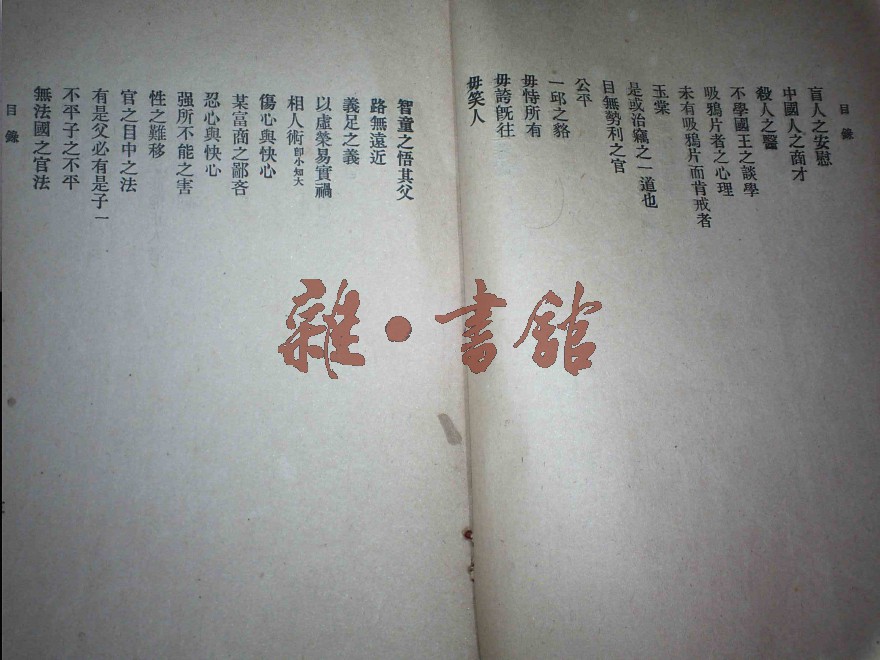 目錄
盲人之安慰
中國人之商才
殺人之醫
不學國王之談學
吸鴉片者之心理
未有吸鴉片而肯戒者
玉棠
是或治竊之一道也
目無勢利之官
公平
一邱之貉
毋恃所有
毋誇既往
毋笑人
智童之悟其父
路無遠近
義足之義
以虛榮易實禍
相人術即小知大
傷心與快心
某富商之鄙吝
忍心與快心
强所不能之害
性之難移
官之目中之法
有是父必有是子一
不平子之不平
無法國之官法
目錄
雜·書館